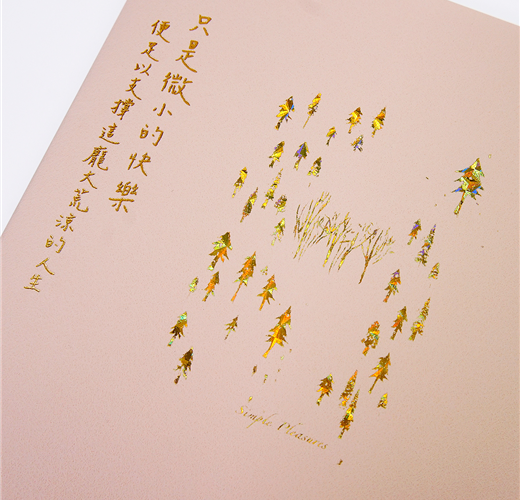 只是微小的快樂
便足以支撐這龐大荒涼的人生
Simple Pleasures